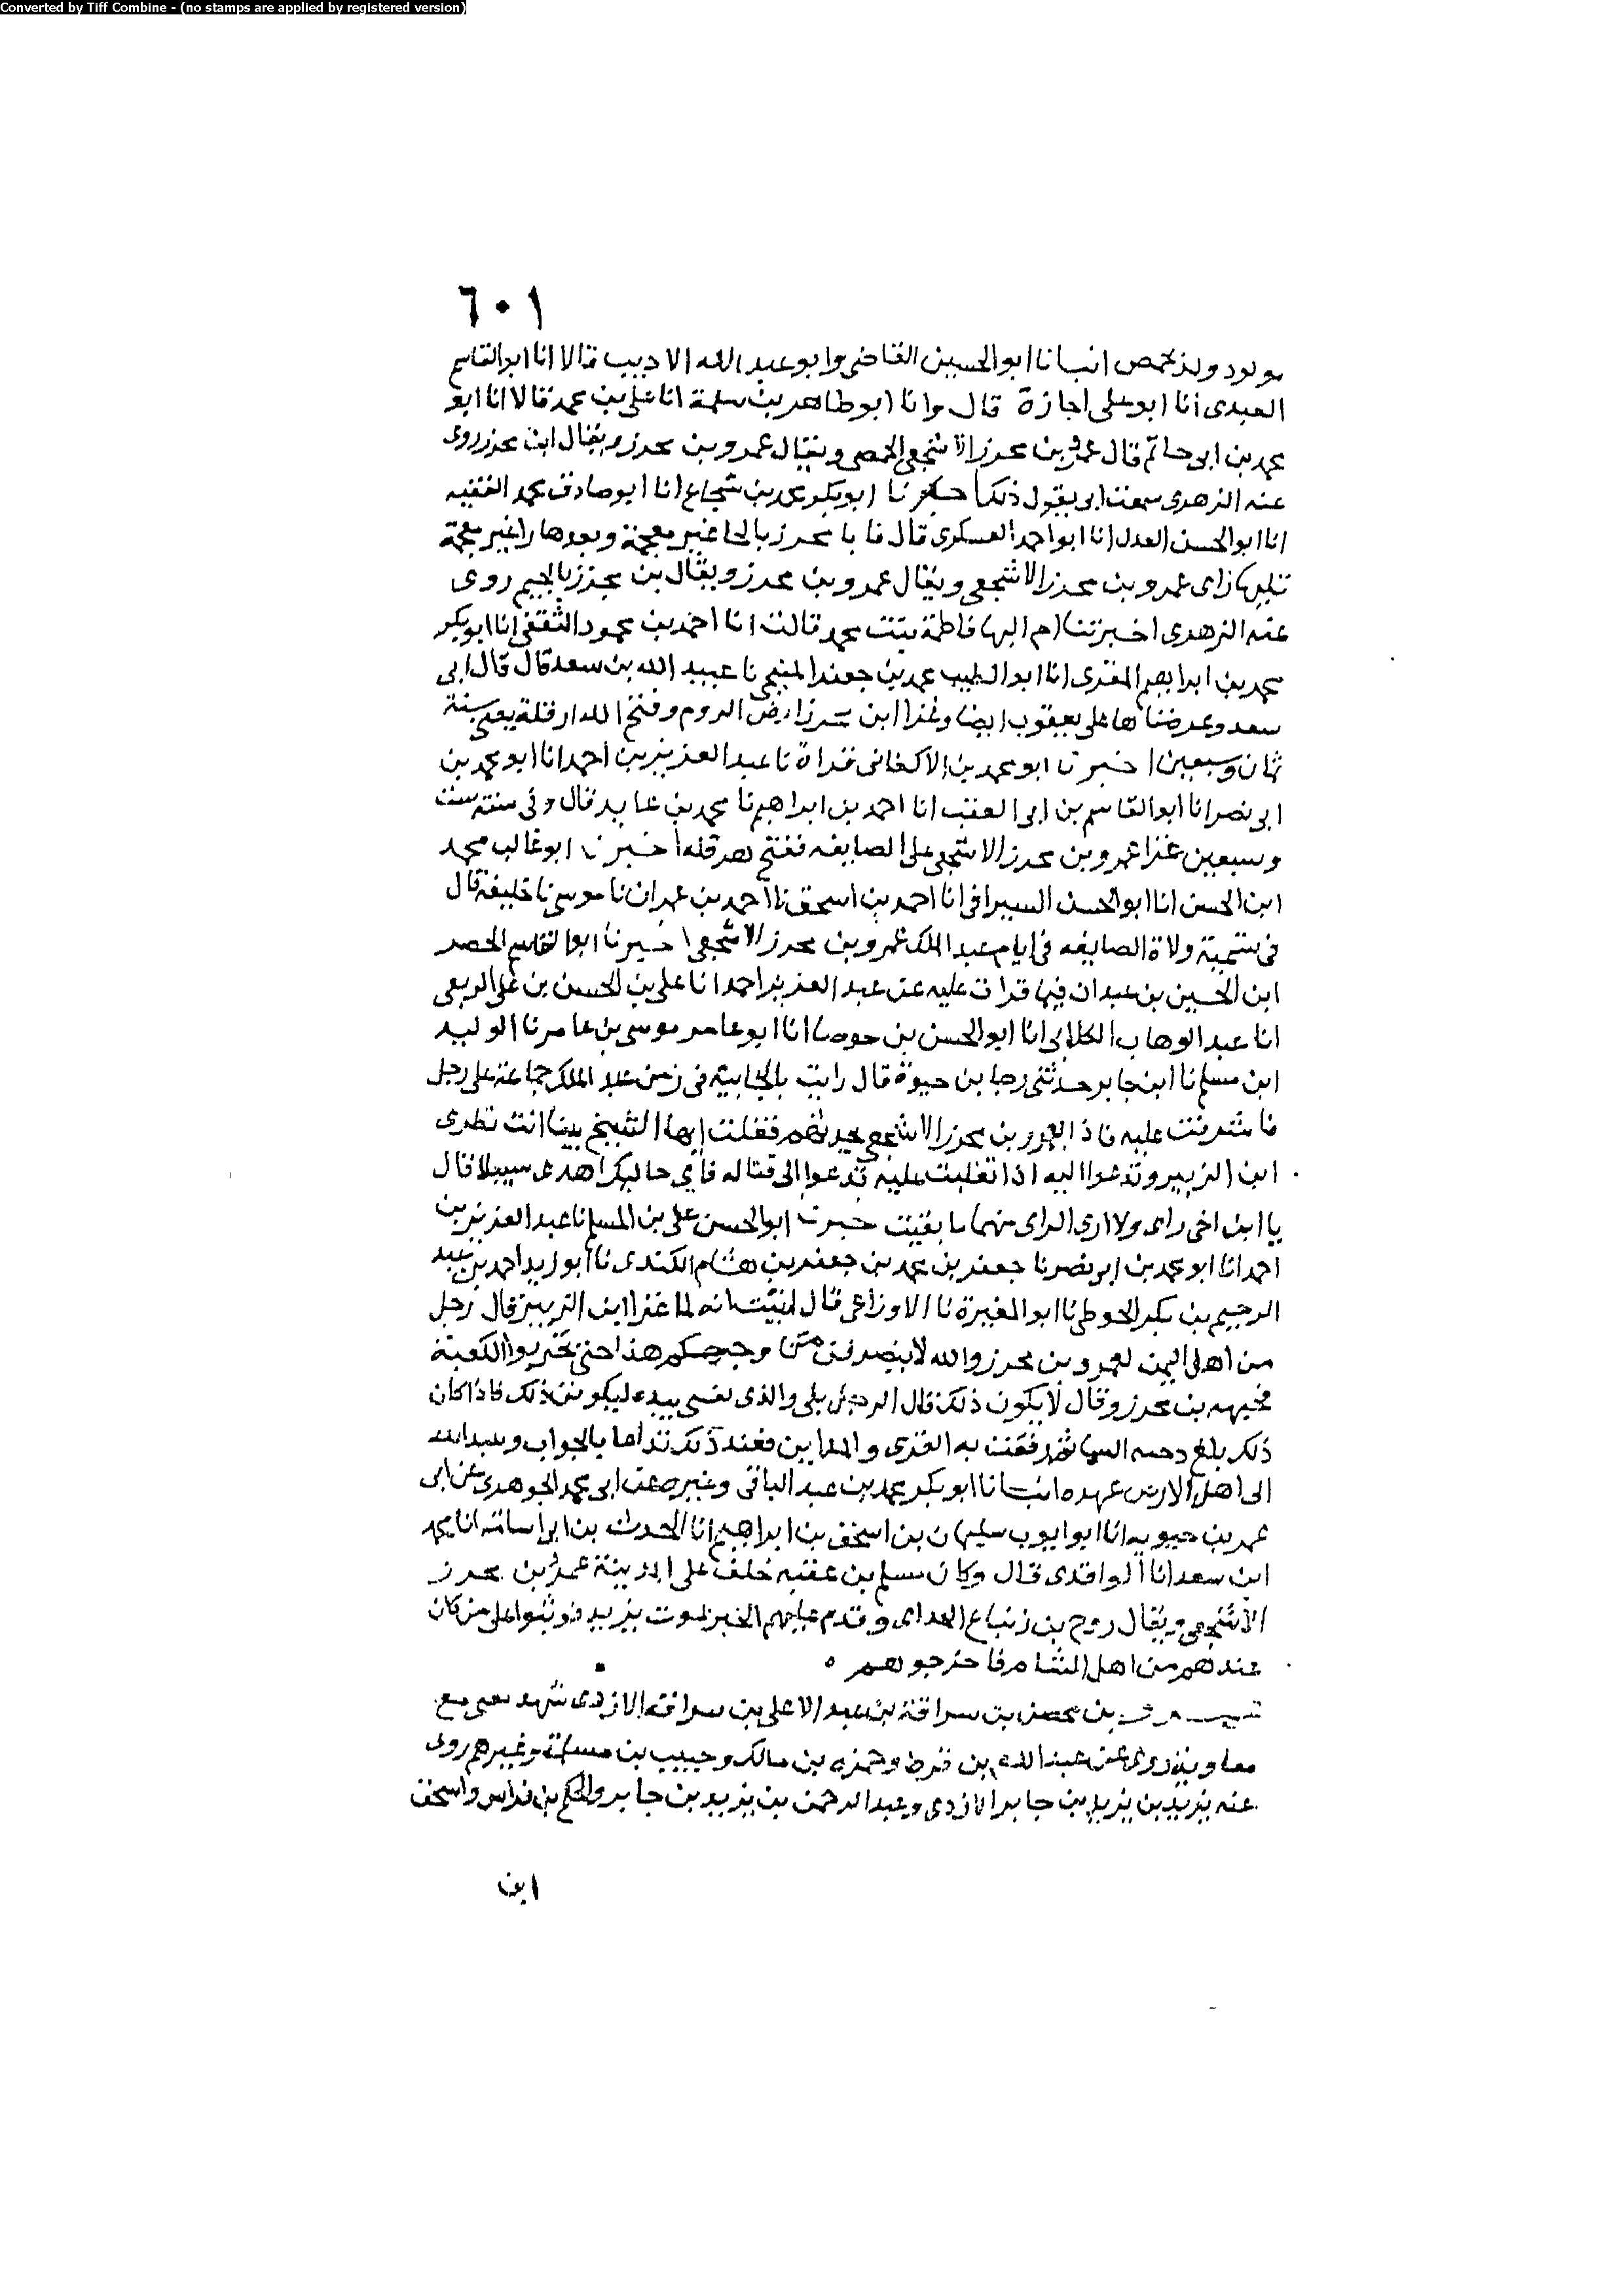 Converted by Tiff Combine - (no stamps are applied by registered version)
٦٠١
مولود ولد بحمص انبانا ابو الحسين القاضي وابو عبد الله الاديب قالا انا ابو القاسم
العبدي انا ابو علي اجازة قال وانا ابو طاهر بن سلمة انا علي بن محمد قالا انا ابو
محمد بن ابي حاتم قال عمرو بن محرز الاشجعي الحمصي ويقال عمرو بن محرز ويقال ابن محرز روى
عنه الزهري سمعت ابي يقول ذلك اخبرنا ابو بكر محمد بن شجاع انا ابو صادق محمد الفقيه
انا ابو الحسن العدل انا ابو احمد العسكري قال فا با محرز بالحا غير معجمة وبعدها را غير معجمة
تليها زاى عمرو بن محرز الاشجعي ويقال عمرو بن محرز ويقال بن مجزز بالجيم روى
عنه الزهري اخبرتنا ام البها فاطمة بنت محمد قالت انا احمد بن محمود الثقفي انا ابو بكر
محمد بن ابراهيم المقرى انا ابو الطيب محمد بن جعفر المنبجي نا عبيد الله بن سعد قال قال ابي
سعد وعرضنا ها على يعقوب ايضا وغزا ابن محرز ارض الروم وفتح الله ارقلة يعني سنة
ثمان وسبعين اخبرنا ابو محمد بن الاكفاني قراة نا عبد العزيز بن احمد انا ابو محمد بن
ابي نصر انا ابو القاسم بن ابي العقب انا احمد بن ابراهيم نا محمد بن عايد قال وفي سنة ست
وسبعين غزا عمرو بن محرز الاشجعي على الصايفه ففتح هرقله اخبرنا ابو غالب محمد
ابن الحسن انا ابو الحسن السيرافي انا احمد بن اسحق نا احمد بن عمران نا موسى نا خليفة قال
في تسمية ولاة الصايفه في ايام عبد الملك عمرو بن محرز الاشجعي اخبرنا ابو القاسم الخضر
ابن الحسين بن عبدان فيما قرات عليه عن عبد العزيز احمد انا علي بن الحسن بن علي الربعي
انا عبد الوهاب الكلابي انا ابو الحسن بن جوصا انا ابو عامر موسى بن عامر نا الوليد
ابن مسلم نا ابن جابر حدثني رجا بن حيوة قال رايت بالجابية في زمن عبد الملك جماعة على رجل
فاشرفت عليه فاذا بعمرو بن محرز الاشجعي يحدثهم فقلت ايها الشيخ بينا انت تطرى
ابن الزبير وتدعوا اليه اذا تغلبت عليه تدعوا الى قتاله فاي حاليك اهدى سبيلا قال
يا ابن اخي راى ولا ارى الراى منهما ما بقيت خبرنا ابو الحسن علي بن المسلم نا عبد العزيز بن
احمد انا ابو محمد بن ابي نصر نا جعفر بن محمد بن جعفر بن هشام الكندي نا ابو زيد احمد بن عبد
الرحيم بن بكر الحوطي نا ابو المغيرة نا الاوزاعي قال انبيت انه لما غزا ابن الزبير قال رجل
من اهل اليمن لعمرو بن محرز والله لا ينصرفن من وجهكم هذا حتى تخربوا الكعبة
بن محرز وقال لا يكون ذلك قال الرجل بلى والذى نفسي بيده ليكونن ذلك فاذا كان
ذلك بلغ السما ثم رفعت به القرى والمداين فعند ذلك بالجواب
الى اهل الارض عهده انبانا ابو بكر محمد بن عبد الباقي وغيره عن ابي محمد الجوهري عن ابي
عمر بن حيويه انا ابو ايوب سليمان بن اسحق بن ابراهيم انا الحرث بن ابي اسامة انا محمد
ابن سعد انا الواقدي قال وكان مسلم بن عقبه خلف على المدينة عمرو بن محرز
الاشجعي ويقال روح بن زنباع الجذامي وقدم عليهم الخبر بموت يزيد فوثبوا على من كان
عندهم من اهل الشام فاخرجوهم
بن محصن بن سراقة بن عبد الاعلى بن سراقة الازدي شهد صفين مع
معاوية روى عن عبد الله بن قرط وحمزه بن مالك وحبيب بن مسلمة وغيرهم روى
عنه يزيد بن يزيد بن جابر الازدي وعبد الرحمن بن يزيد بن جابر والحكم بن فراس واسحق
ابن